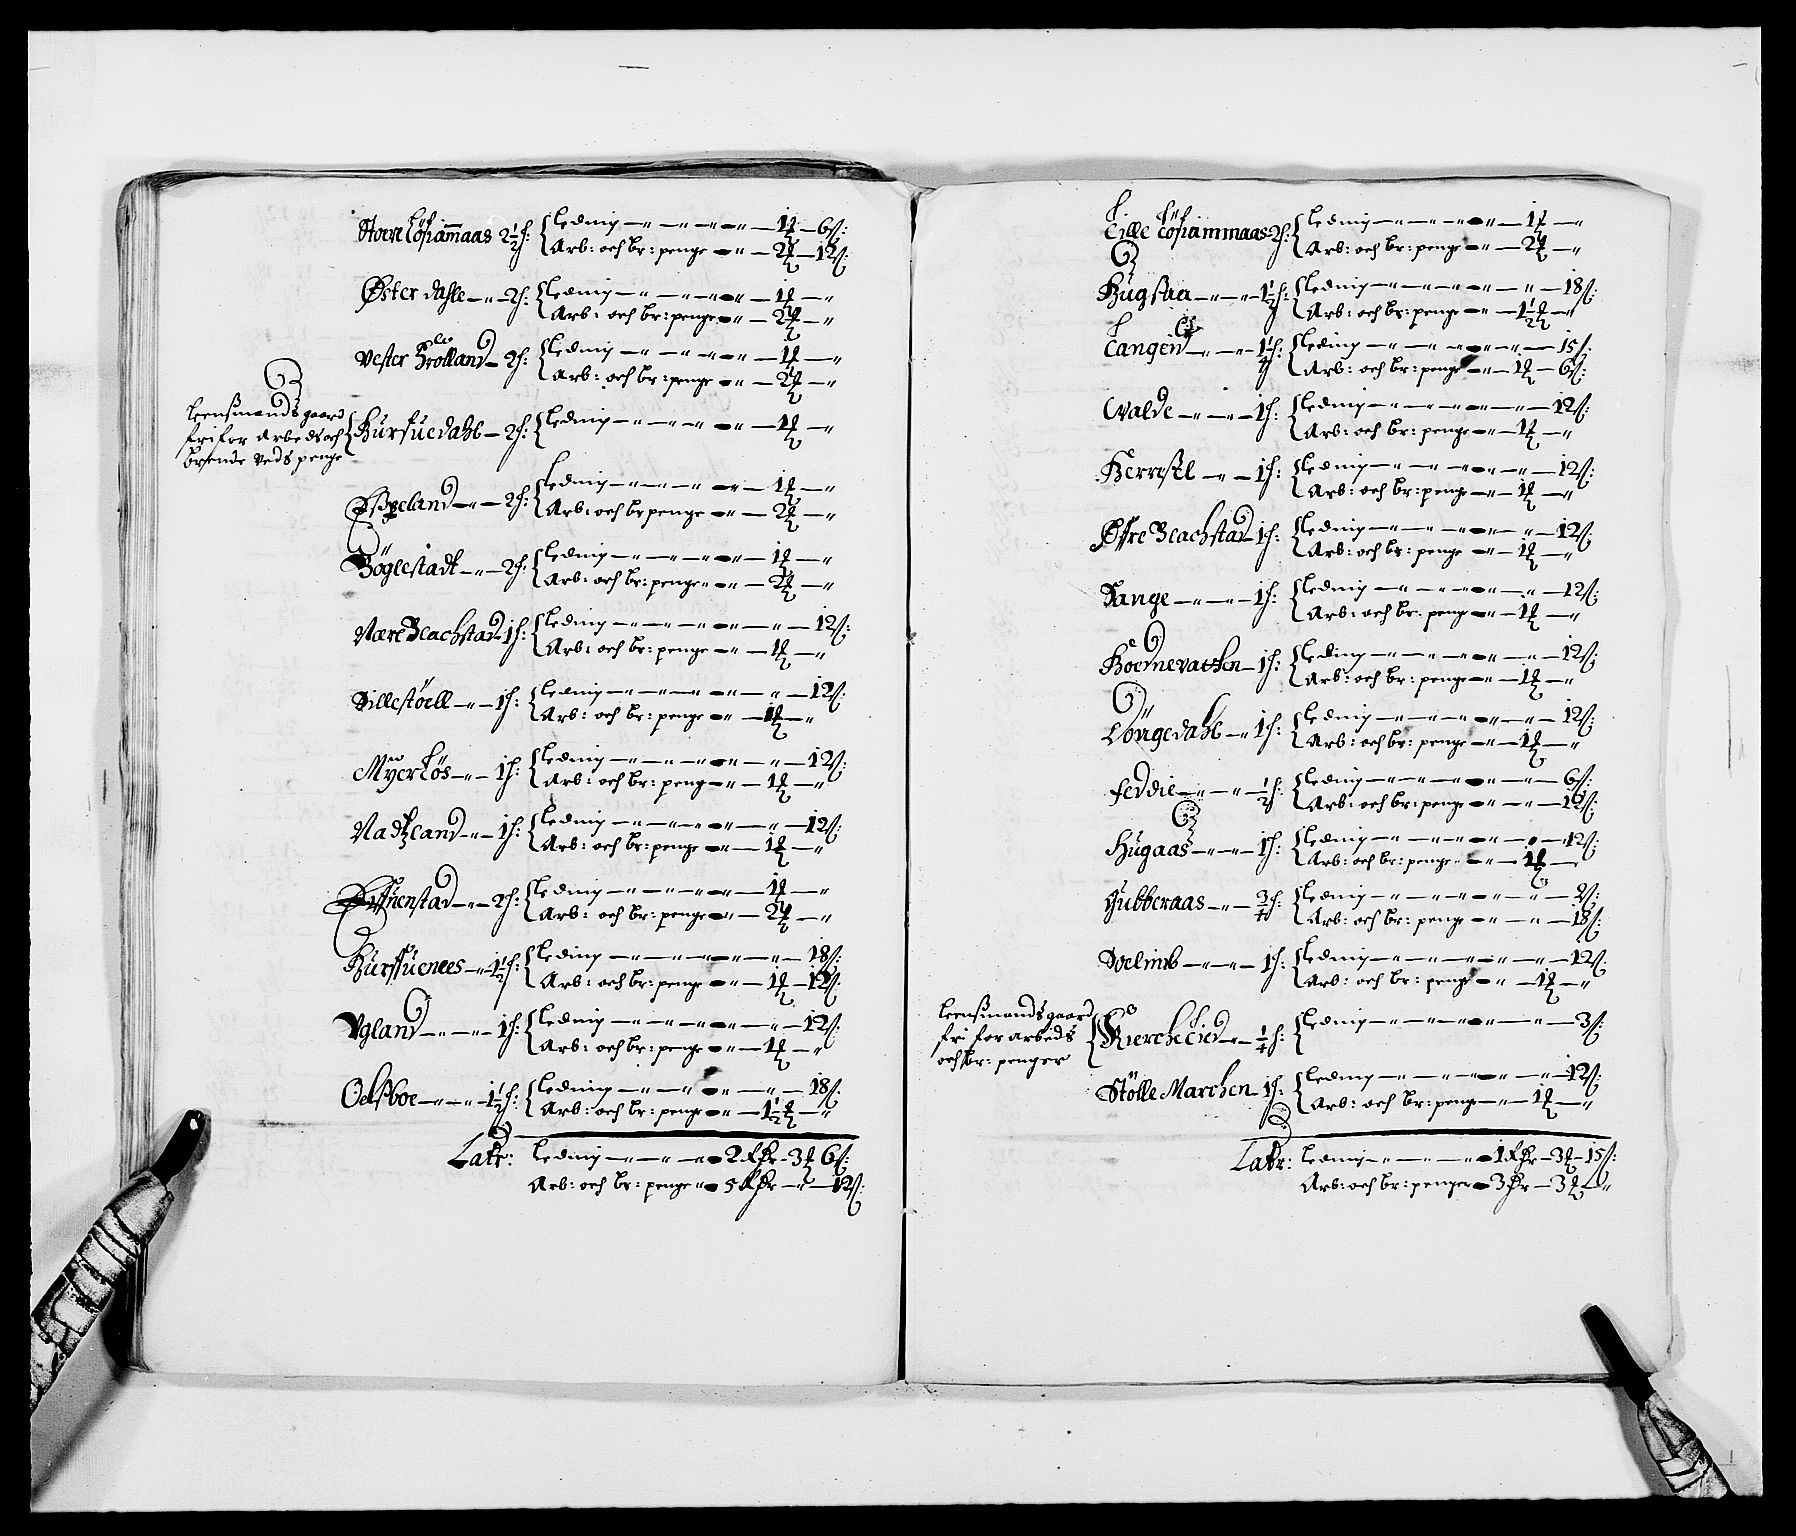 Store Löfiammaas 2½ h: Leding — 1 ꝑ — 6 ß:
Arb: och br: penge — 2 ꝑ — 12 ß:
Øster Dahle — 2 h: Leding — 1 ꝑ — "
Arb: och br: penge — 2 ꝑ — "
Vester Hrolland — 2 h: Leding — 1 ꝑ — "
Arb: och br: penge — 2 ꝑ — "
Leensmands gaard
fri for arbeds och
brende veds penge
Hursuedahl — 2 h: Leding — 1 ꝑ — "
Espeland — 2 h: Leding — 1 ꝑ — "
Arb: och br penge — 2 ꝑ — "
Böglestadt — 2 h: Leding — 1 ꝑ — "
Arb: och br: penge — 2 ꝑ — "
Nære Beachstad 1 h: Leding — 12 ß:
Arb: och br: penge — 1 ꝑ — "
Sillestöell — 1 h: Leding — 12 ß:
Arb: och br: penge — 1 ꝑ — "
Myerlös — 1 h: Leding — 12 ß:
Arb: och br: peng — 1 ꝑ — "
Nadtzland — 1 h: Leding — 12 ß:
Arb: och br: penge — 1 ꝑ — "
Leding — 1 ꝑ — "
Arb: och br: penge — 2 ꝑ — "
Hurssuenees — 1½ h: Leding — 18 ß:
Arb: och br: penge — 1 ꝑ — 12 ß:
Vgland — 1 h: Leding — 12 ß:
Arb: och br: penge — 1 ꝑ — "
Oelsboe — 1½ h: Leding — 18 ß:
Arb: och br: penge — 1½ ꝑ — "
Latr: Leding — 2 Rdr — 3 ꝑ 6 ß:
Arb: och br: penge — 5 Rdr — " — 12 ß:
Lille Löfiammaas 2 h: Leding — 1 ꝑ — "
Arb: och br: penge — 2 ꝑ — "
Hugstaa — 1½ h: Leding — 18 ß:
Arb: och br: penge — 1½ ꝑ — "
Langeid — 1¼ h: Leding — 15 ß:
Arb: och br: penge — 1 ꝑ — 6 ß:
Walde — 1 h: Leding — 12 ß:
Arb: och br: penge — 1 ꝑ — "
Herrestl — 1 h: Leding — 12 ß:
Arb: och br: penge — 1 ꝑ — "
Øffre Beachstad 1 h: Leding — 12 ß:
Arb: och br: penge — 1 ꝑ — "
Sange — 1 h: Leding — 12 ß:
Arb: och br: penge — 1 ꝑ — "
Hoednevatten — 1 h: Leding — 12 ß:
Arb: och br: penge — 1 ꝑ — "
Löngedahl — 1 h: Leding — 12 ß:
Arb: och br: penge — 1 ꝑ — "
Feddie — ½ h: Leding — 6 ß:
Arb: och br: penge — 12 ß:
Hügaas — 1 h: Leding — 12 ß:
Arb: och br: penge — 1 ꝑ —
Gubberaas — ¾ h: Leding — 9 ß:
Arb: och br: penge — 18 ß:
Soelimb — 1 h: Leding — 12 ß:
Arb: och br: penge — 1 ꝑ — "
Leensmands gaard
fri for arbeids
och br: penger
Kierchelied — ¼ h: Leding — 3 ß:
Stölle Marchen 1 h: Leding — 12 ß:
Arb: och br: peng — 1 ꝑ — "
Latr: Leding — 1 Rdr — 3 ꝑ — 15 ß:
Arb: och br: penger — 3 dr — 3 ꝑ — "